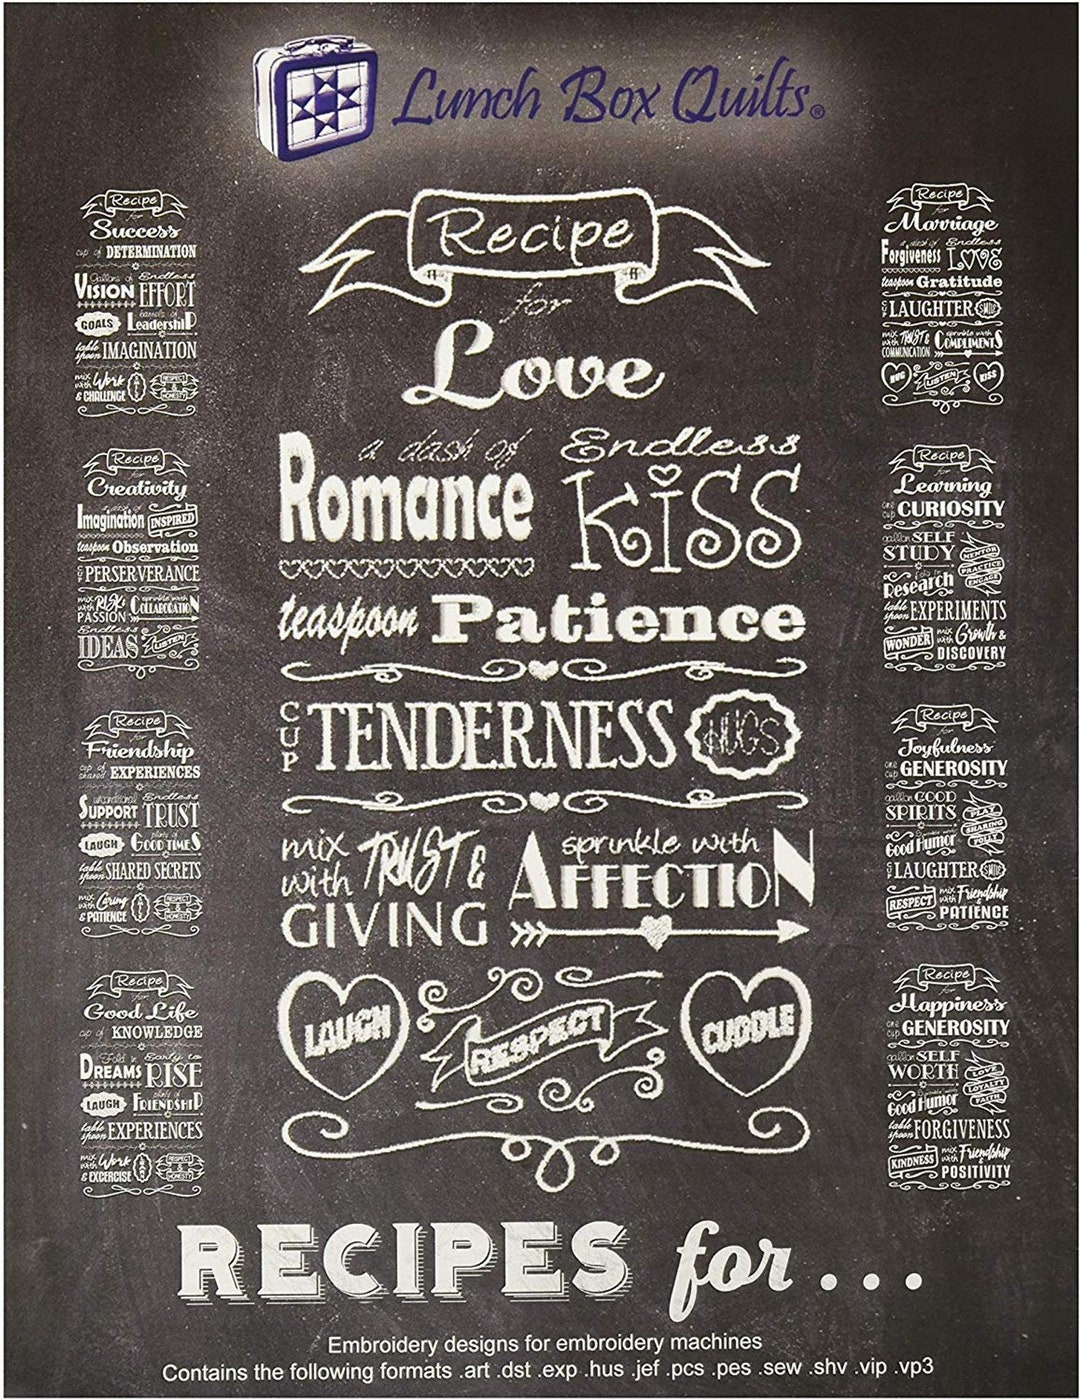 Lunch Box Quilts®
Recipe
for
Success
cup of DETERMINATION
Gallons of Endless
VISION EFFORT
barrels of
GOALS LeadershiP
table spoon IMAGINATION
mix with Work
& CHALLENGE
RESPECT & HONESTY
Recipe
for
Creativity
a dash of
Imagination INSPIRED
teaspoon Observation
CUP PERSERVERANCE
mix with RISK & sprinkle with
PASSION COLLABORATION
Endless
IDEAS LISTEN
Recipe
for
Friendship
cup of shared EXPERIENCES
unconditional Endless
SUPPORT TRUST
plenty of
LAUGH GOOD TIMES
table spoon SHARED SECRETS
mix with Caring
& PATIENCE
RESPECT & HONESTY
Recipe
for
Good Life
cup of KNOWLEDGE
Fold in Early to
DREAMS RISE
plenty of
LAUGH FRIENDSHIP
table spoon EXPERIENCES
mix with Work
& EXCERCISE
RESPECT & HONESTY
Recipe
for
Love
a dash of Endless
Romance KISS
teaspoon Patience
CUP TENDERNESS HUGS
mix with TRUST & sprinkle with
GIVING AFFECTION
LAUGH RESPECT CUDDLE
Recipe
for
Marriage
a dash of Endless
Forgiveness LOVE
teaspoon Gratitude
CUP LAUGHTER SMILE
mix with TRUST & sprinkle with
COMMUNICATION COMPLIMENTS
HUG LISTEN KISS
Recipe
for
Learning
one cup CURIOSITY
gallon SELF
STUDY MENTOR PRACTICE ENGAGE
fold in
Research
table spoon EXPERIMENTS
WONDER mix with Growth &
DISCOVERY
Recipe
for
Joyfulness
one cup GENEROSITY
gallon GOOD
SPIRITS PLAY SHARING FOLLY
sprinkle with
Good Humor
CUP LAUGHTER SMILE
RESPECT mix with Friendship
PATIENCE
Recipe
for
Happiness
one cup GENEROSITY
gallon SELF
WORTH LOVE LOYALTY FAITH
sprinkle with
Good Humor
table spoon FORGIVENESS
KINDNESS mix with Friendship
POSITIVITY
RECIPES for...
Embroidery designs for embroidery machines
Contains the following formats .art .dst .exp .hus .jef .pcs .pes .sew .shv .vip .vp3